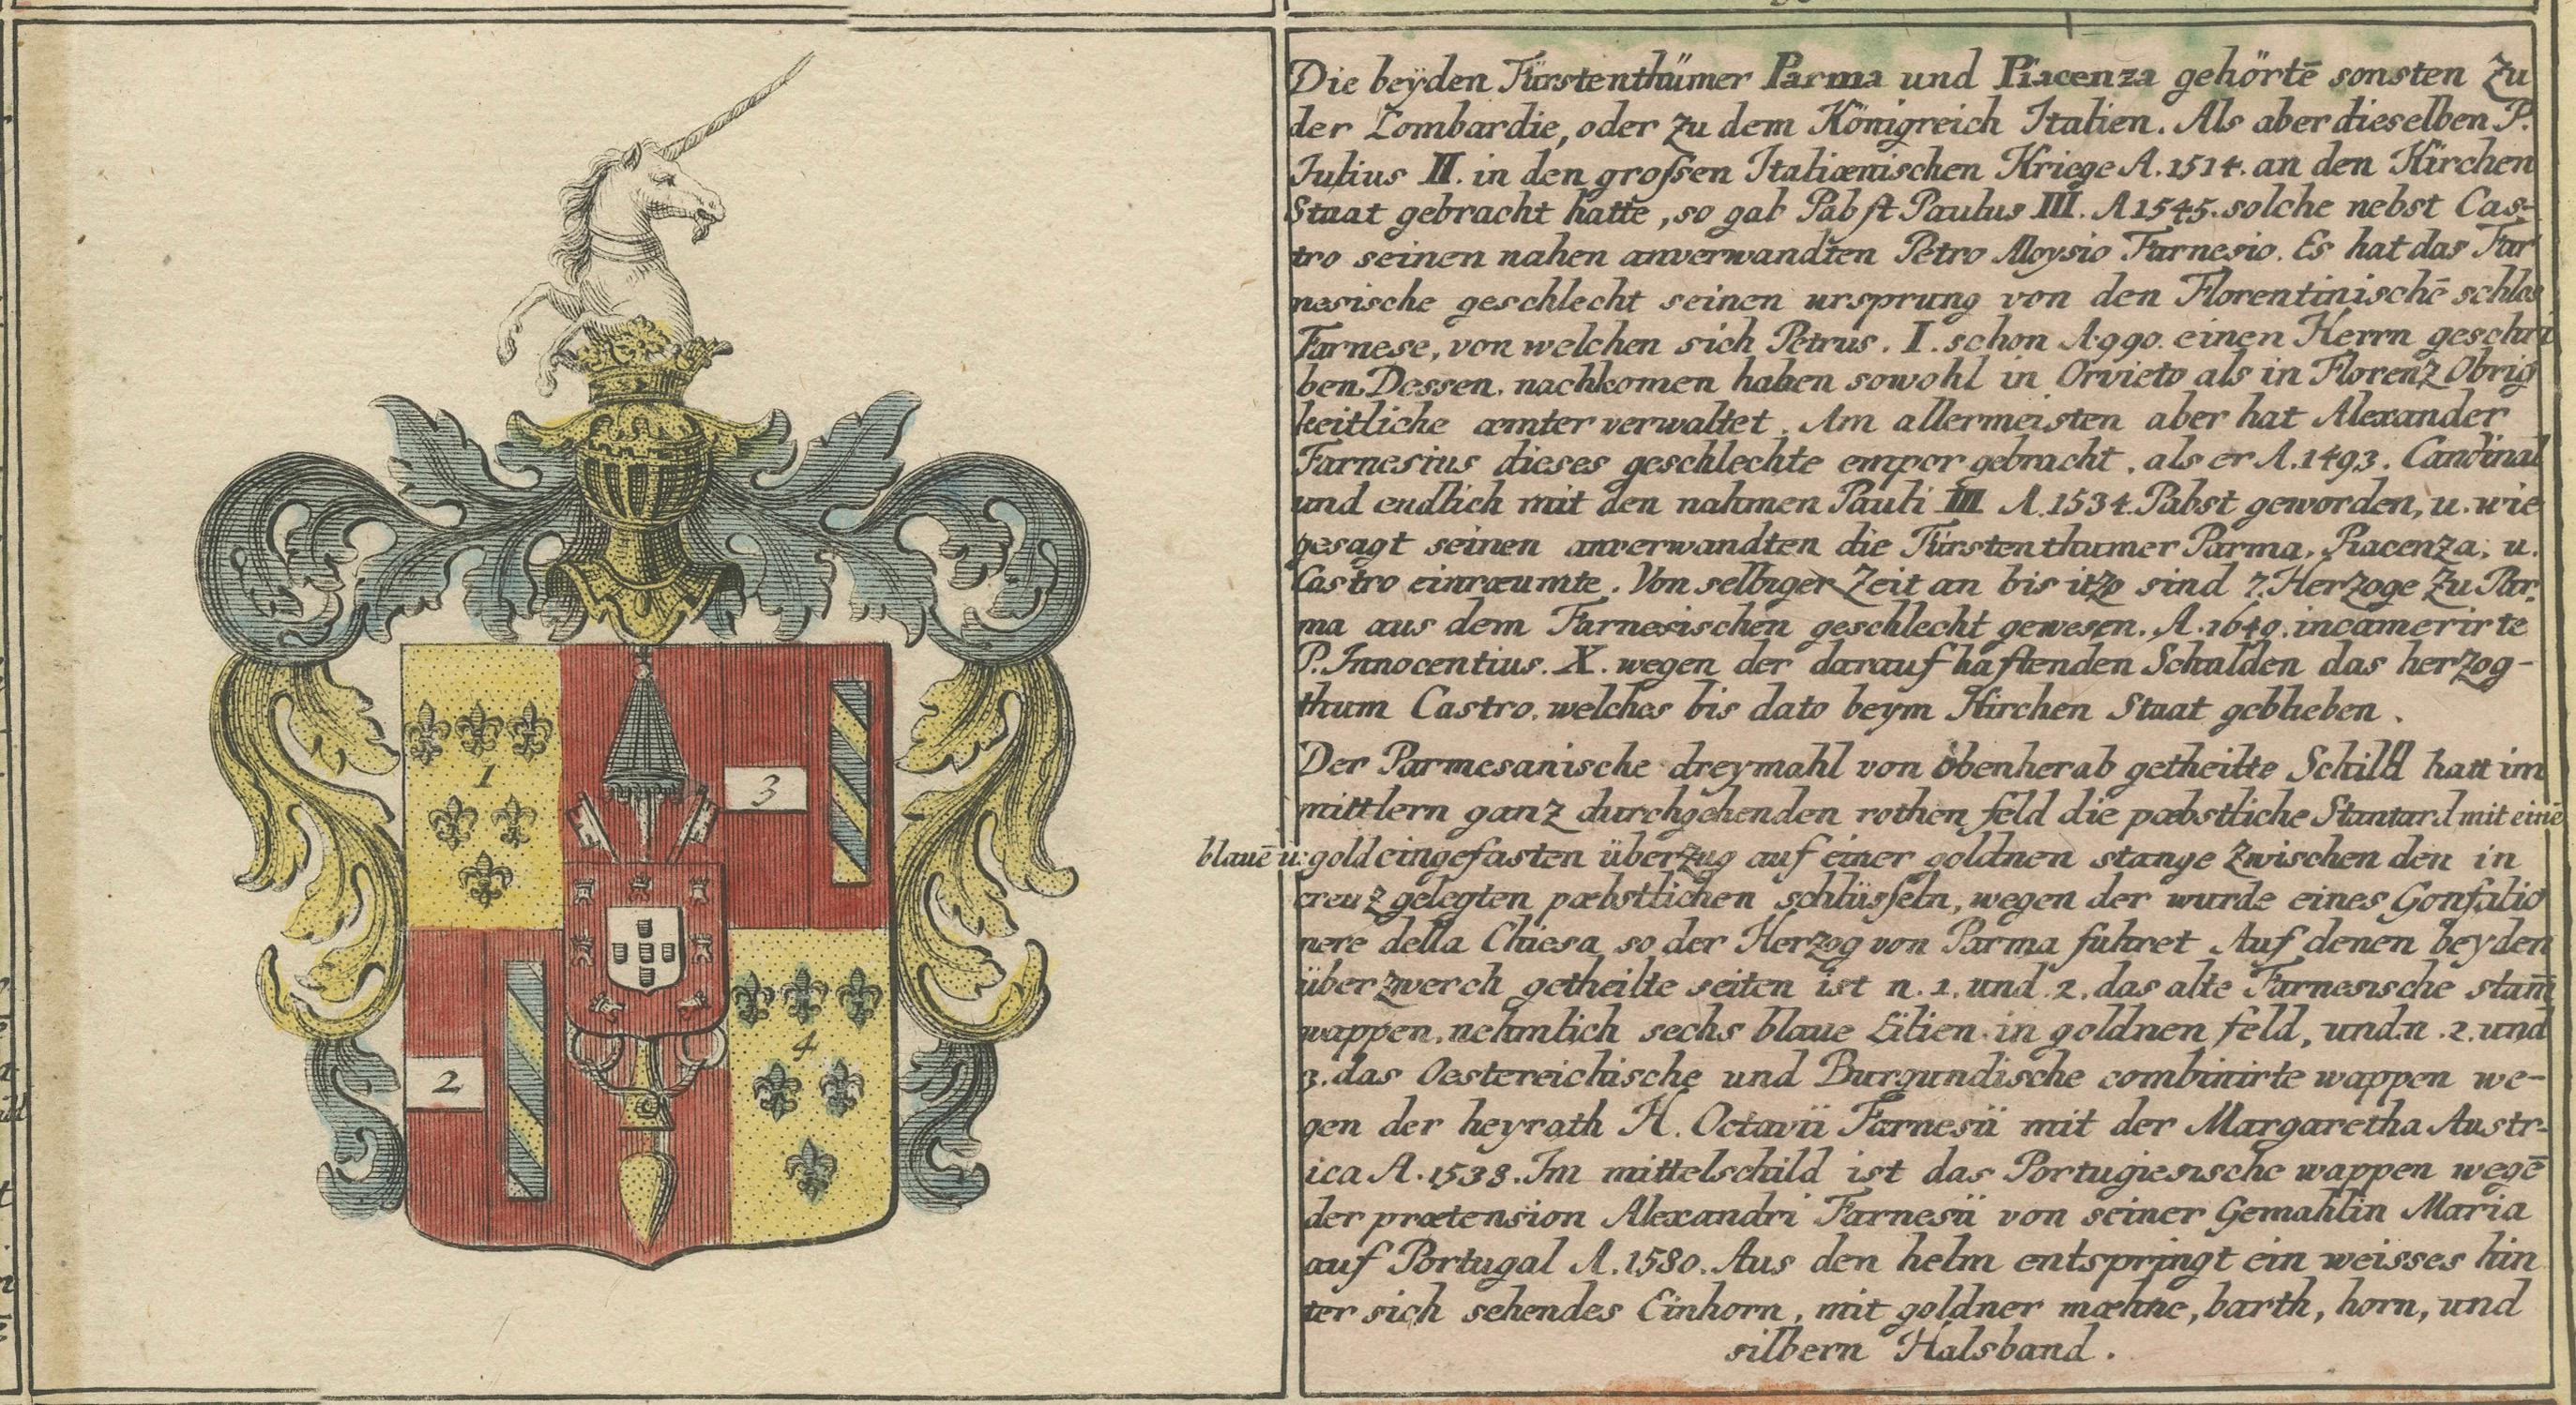 Die beÿden Fürstenthümer Parma und Piacenza gehörtē sonsten zu
der Lombardie, oder zu dem Königreich Italien. Als aber dieselben P.
Julius II. in den grossen Italiænischen Kriege A. 1514. an den Kirchen
Staat gebracht hatte, so gab Pabst Paulus III. A 1545. solche nebst Cas-
tro seinen nahen anverwandten Petro Aloysio Farnesio. Es hat das Far
nesische geschlecht seinen ursprung von den Florentinischē schlos
Farnese, von welchen sich Petrus. I. schon A. 990. einen Herrn geschri
ben. Dessen. nachkomen haben sowohl in Orvieto als in Florenz Obrig
keitliche æmter verwaltet. Am allermeisten aber hat Alexander
Farnesius dieses geschlechte empor gebracht, als er A. 1493. Cardinal
und endlich mit den nahmen Pauli III A. 1534. Pabst geworden, u. wie
gesagt seinen anverwandten die Fürstenthumer Parma, Piacenza, u.
Castro einræumte. Von selbiger Zeit an bis itzo sind 7. Herzoge zu Par-
ma aus dem Farnesischen geschlecht gewesen. A. 1649. incamerirte
P. Innocentius. X. wegen der darauf haftenden Schulden das herzog-
thum Castro, welches bis dato beym Kirchen Staat geblieben.
Der Parmesanische dreymahl von obenherab getheilte Schild hatt im
mittlern ganz durchgehenden rothen feld die pæbstliche Stantard mit einē
blauē u. gold eingefasten überzug auf einer goldnen stange zwischen den in
creuz gelegten pæbstlichen schlüsseln, wegen der wurde eines Gonfalio
nere della Chiesa so der Herzog von Parma fuhret Auf denen beyden
überzwerch getheilte seiten ist n. 1. und. 2. das alte Farnesische stam̄
wappen, nehmlich sechs blaue Lilien in goldnen feld, und. n. 2. und
3. das Oestereichische und Burgundische combinirte wappen we-
gen der heyrath H. Octavii Farnesii mit der Margaretha Austr-
ica A. 1538. Im mittelschild ist das Portugiesische wappen wegē
der prætension Alexandri Farnesii von seiner Gemahlin Maria
auf Portugal A. 1580. Aus den helm entspringt ein weisses hin
ter sich sehendes Einhorn, mit goldner mæhne, barth, horn, und
silbern Halsband.
1
3
2
4